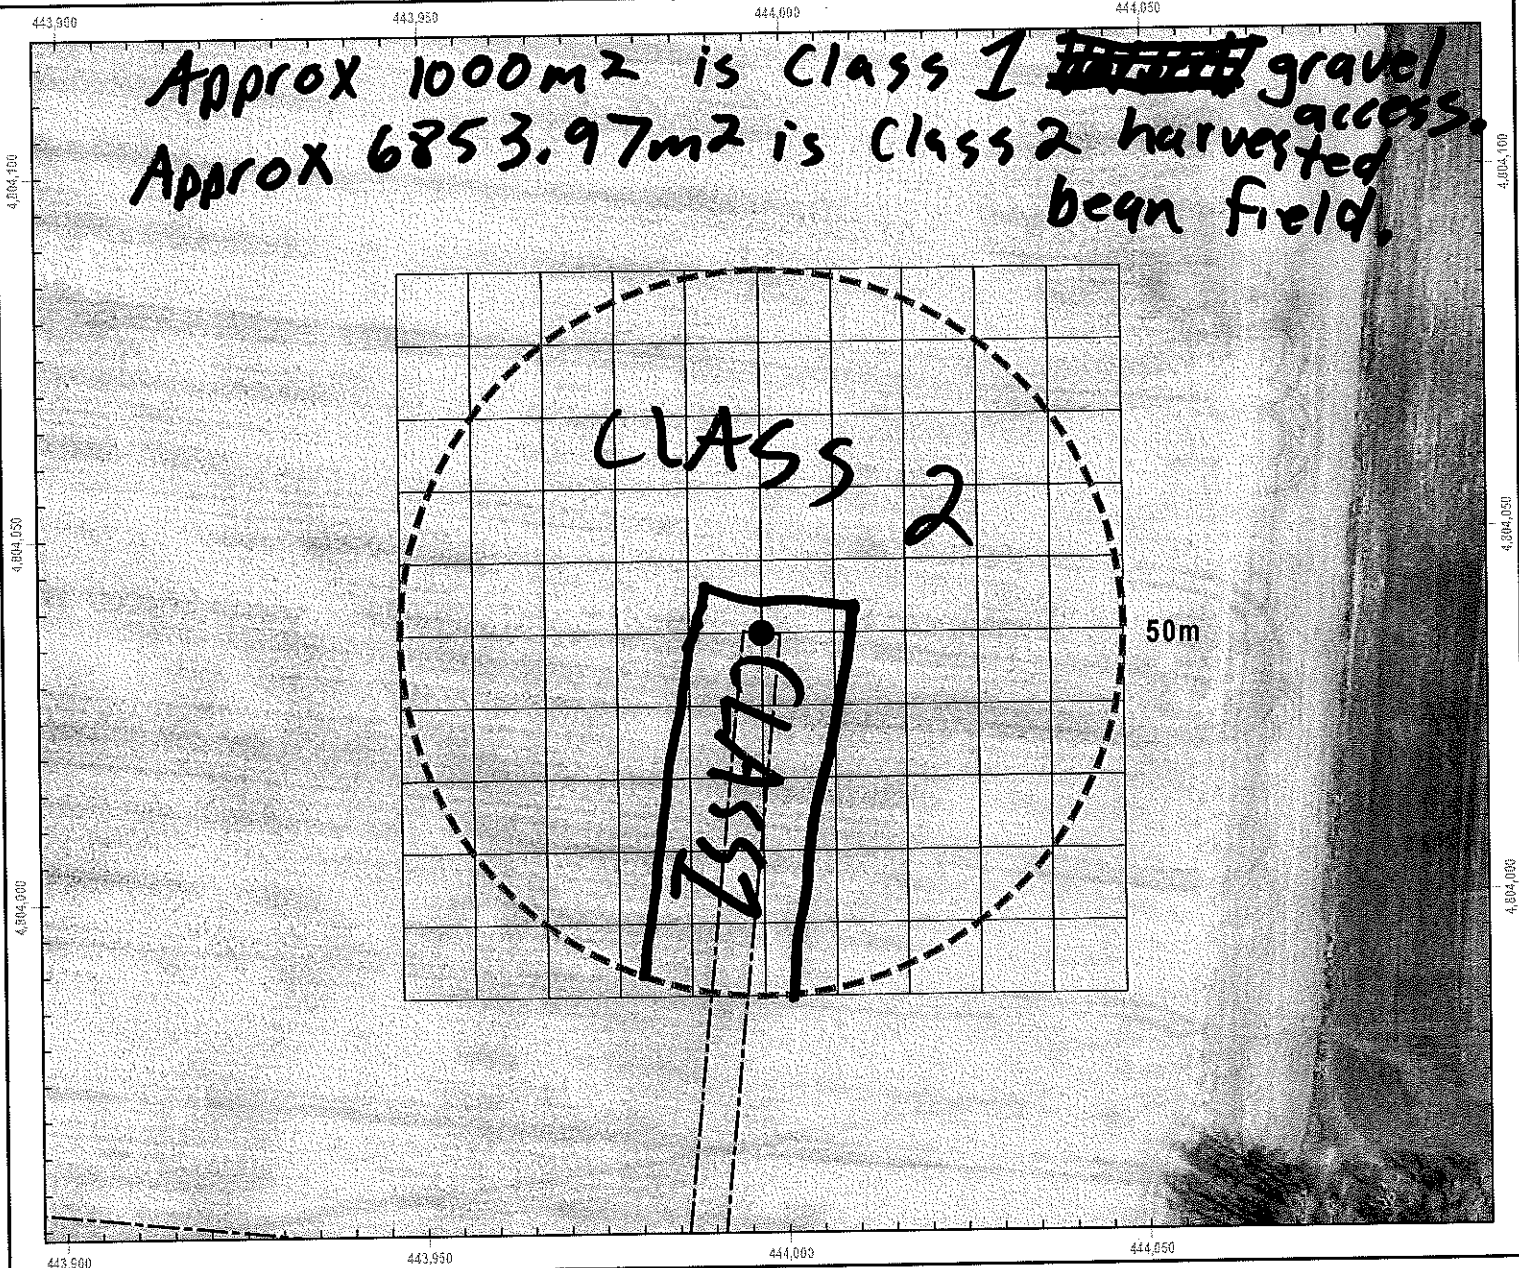 443,900 443,950 444,000 444,050
Approx 1000m2 is Class 1 gravel
access.
Approx 6853.97m2 is Class 2 harvested
bean field.
4,804,100 4,804,100
CLASS 2
4,804,050 4,804,050
50m
CLASS 1
4,804,000 4,804,000
443,900 443,950 444,000 444,050